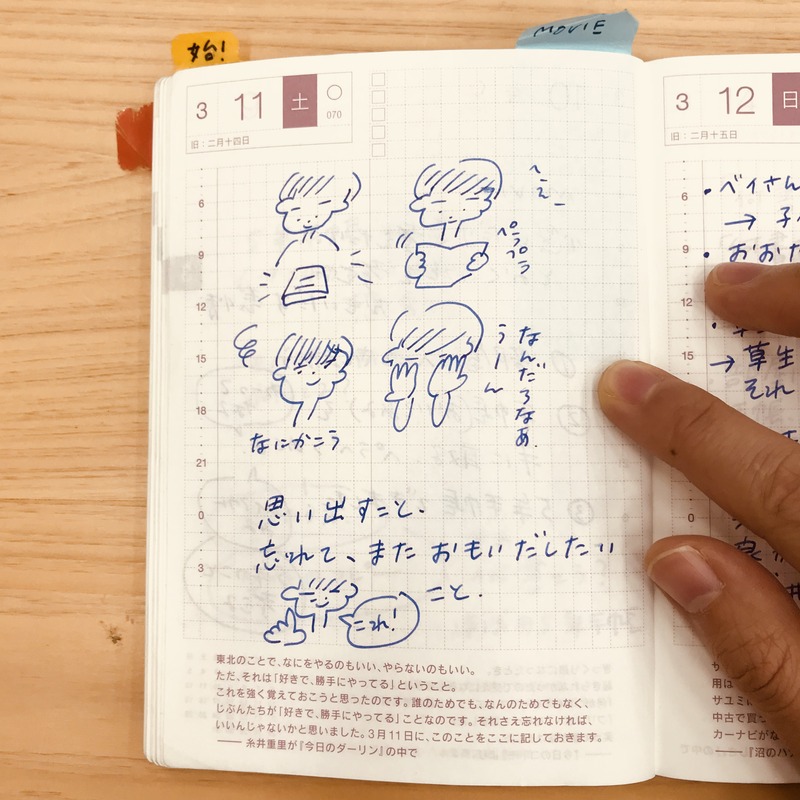 始!
MOVIE
3 11 土
070
旧:二月十四日
3 12 日
旧:二月十五日
6
9
12
15
18
21
0
3
へぇー
ペラペラ
なにかこう
うーん
なんだろなぁ.
思い出すこと.
忘れて、また おもいだしたい
こと.
これ!
東北のことで、なにをやるのもいい、やらないのもいい。
ただ、それは「好きで、勝手にやってる」ということ。
これを強く覚えておこうと思ったのです。誰のためでも、なんのためでもなく、
じぶんたちが「好きで、勝手にやってる」ことなのです。それさえ忘れなければ、
いいんじゃないかと思いました。3月11日に、このことをここに記しておきます。
—— 糸井重里が『今日のダーリン』の中で
6
9
12
15
0
・ベイさん
→ 子
・おおた
→ 草生
それ
用は
サユミに
中古で買っ
カーナビがな
——『沼のハッ